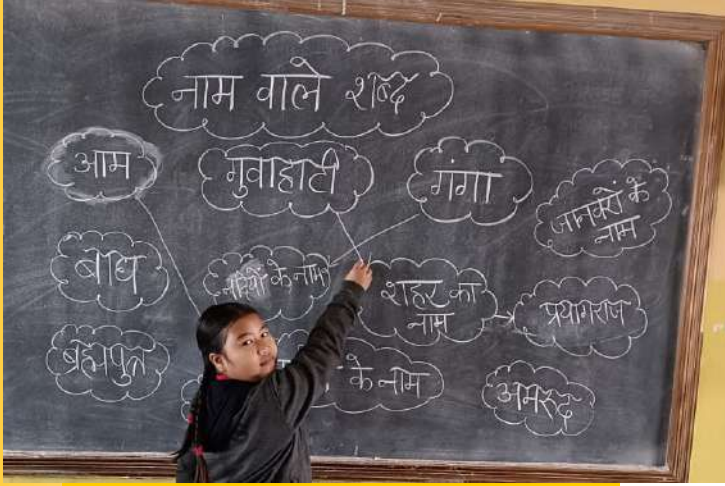 नाम वाले शब्द
आम
गुवाहाटी
गंगा
जानवरों के
नाम
बाघ
नदियों के नाम
शहर का
नाम
प्रयागराज
ब्रह्मपुत्र
के नाम
अमरूद